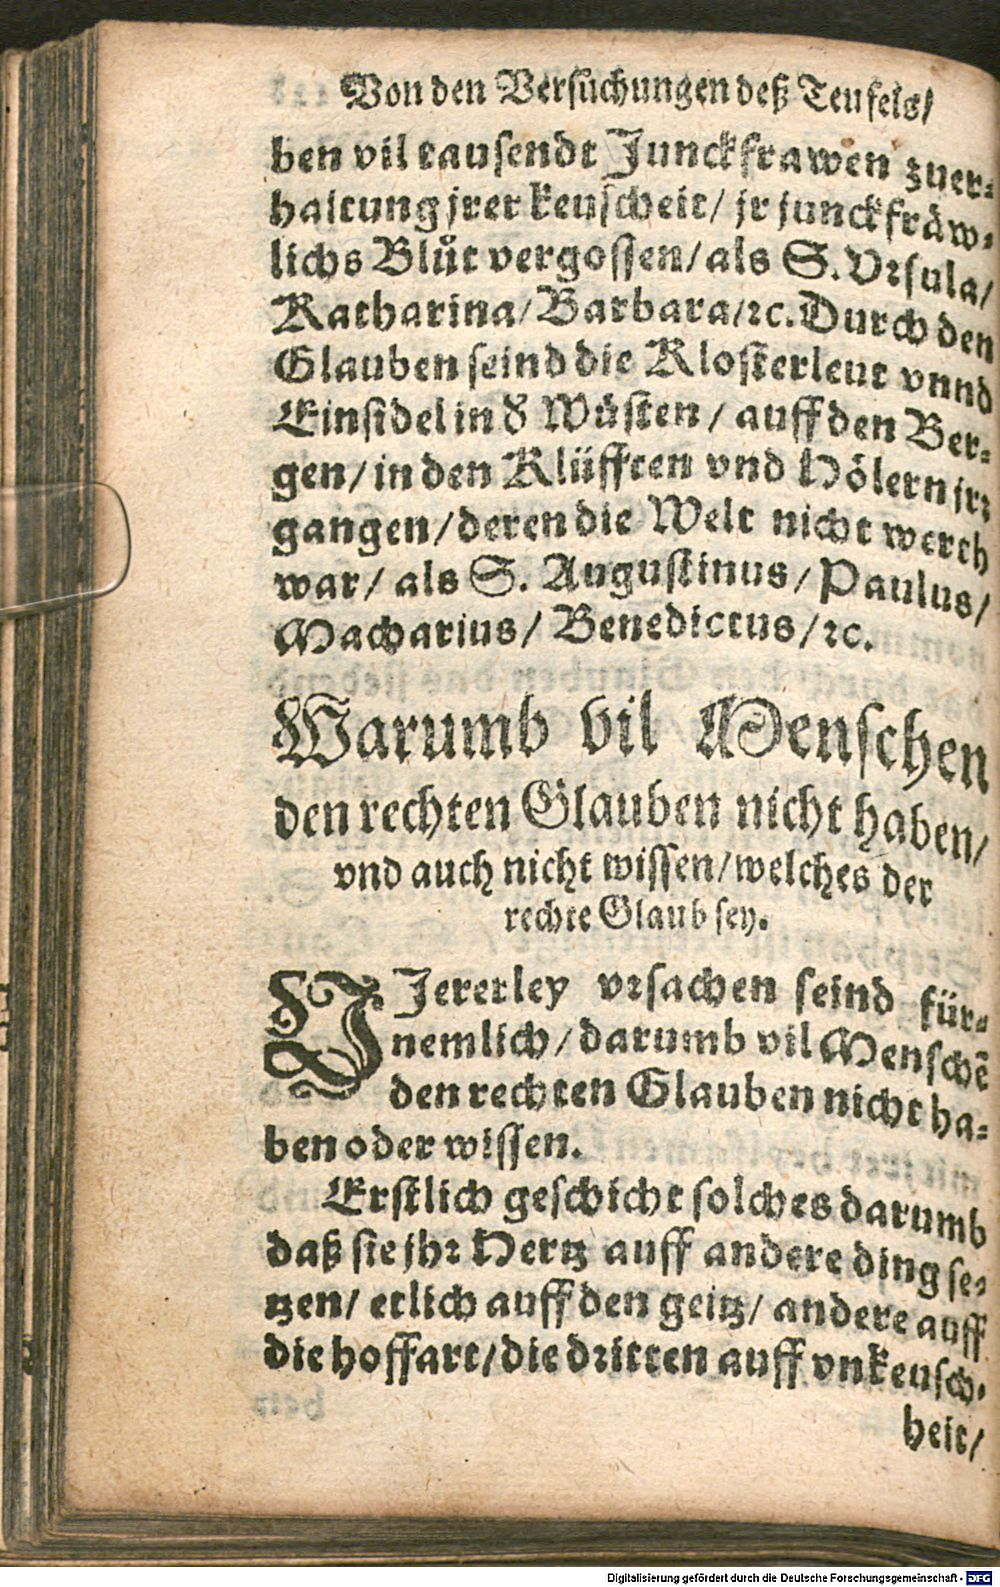 Von den Versuchungen deß Teufels/
ben vil tausendt Junckfrawen zuer-
haltung jrer keuscheit/ jr junckfräw-
lichs Blůt vergossen/ als S. Vrsula/
Katharina/ Barbara/ ꝛc. Durch den
Glauben seind die Klosterleut vnnd
Einsidel in d̕ Wüsten / auff den Ber-
gen/ in den Klüfften vnd Hölern jrr
gangen/ deren die Welt nicht werth
war/ als S. Augustinus/ Paulus/
Macharius/ Benedictus/ ꝛc.
Warumb vil Menschen
den rechten Glauben nicht haben/
vnd auch nicht wissen/ welches der
rechte Glaub sey.
VJererley vrsachen seind für-
nemlich/ darumb vil Menschẽ
den rechten Glauben nicht ha-
ben oder wissen.
Erstlich geschicht solches darumb
daß sie jhr Hertz auff andere ding se-
tzen/ etlich auff den geitz/ andere auff
die hoffart/ die dritten auff vnkeusch-
heit/
Digitalisierung gefördert durch die Deutsche Forschungsgemeinschaft - DFG